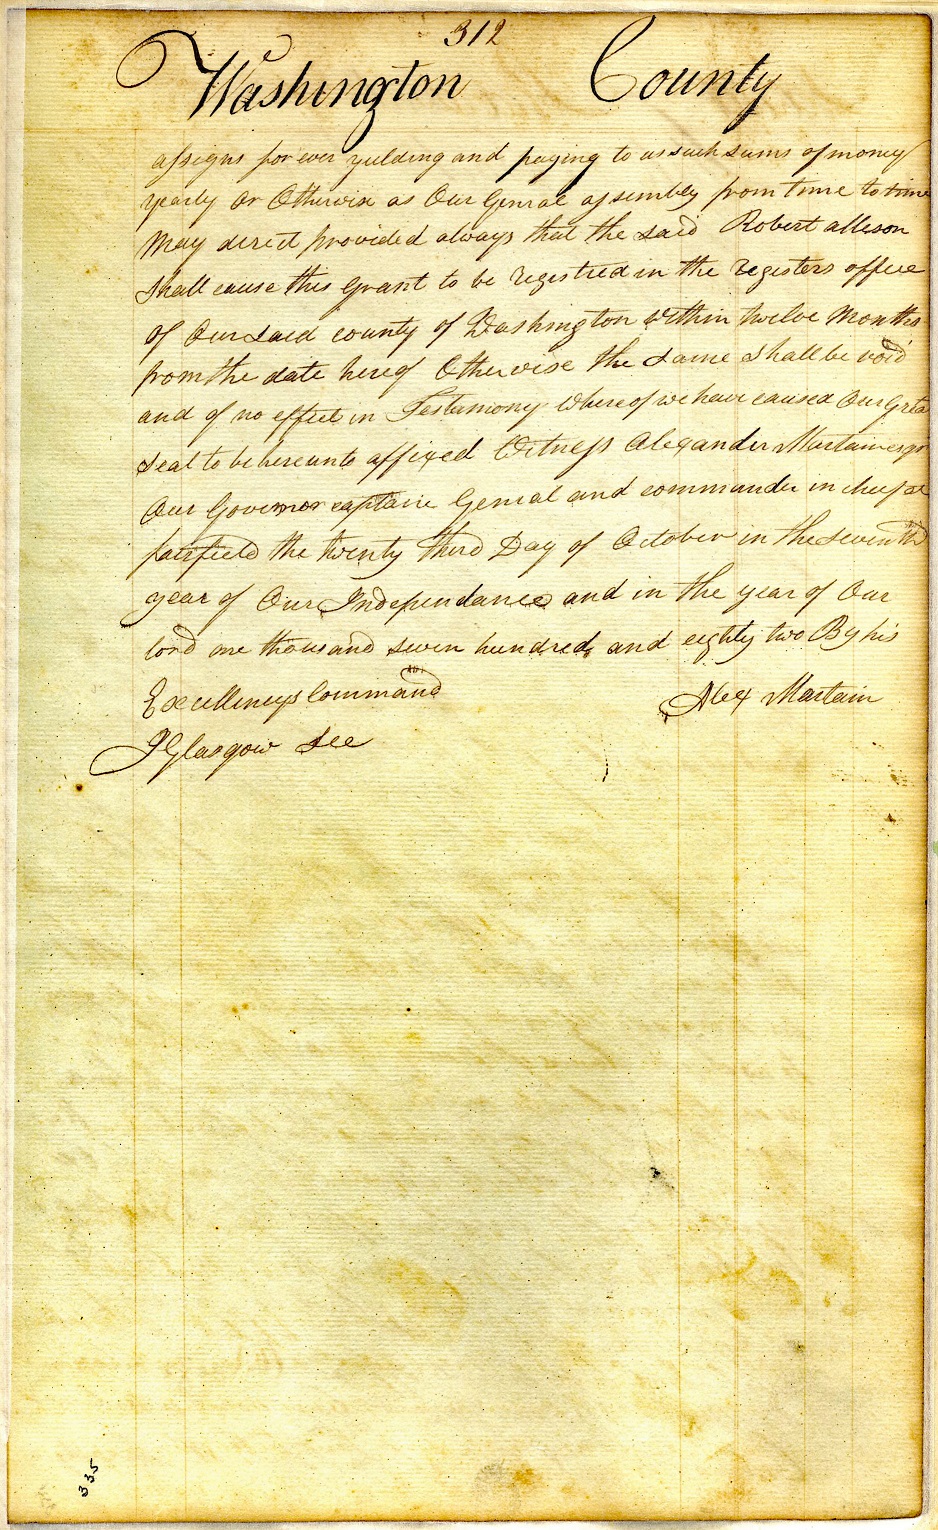 312
Washington County
assigns for ever yulding and paying to us such sums of money
yearly or Otherwise as Our Genral assembly from time to time
May direct provided always that the said Robert alleson
shall cause this Grant to be registred in the registers office
of Our said county of Washington within twelve Months
from the date hereof Otherwise the same shall be void
and of no effect in Testamony Whereof we have caused Our Grta
seal to be hereunto affixed Witness Alexander Martain esqr
Our Governor captain Genral and commander in cheif at
fairfield the twenty third Day of October in the seventh
year of Our Independance and in the year of Our
lord one thousand seven hundred and eighty two By his
Excellencys Command Alex Martain
J Glasgow See
335